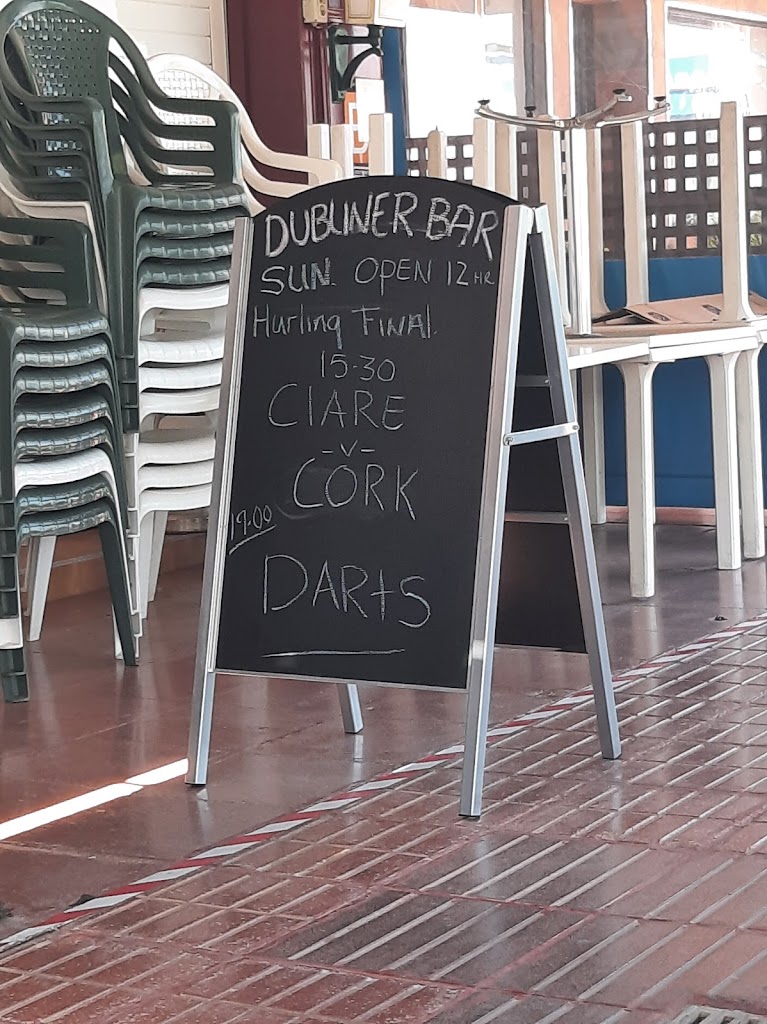 DUBLINER BAR
SUN. OPEN 12 HR
Hurling FINAL.
15-30
CLARE
-V-
CORK
19.00
DARTS